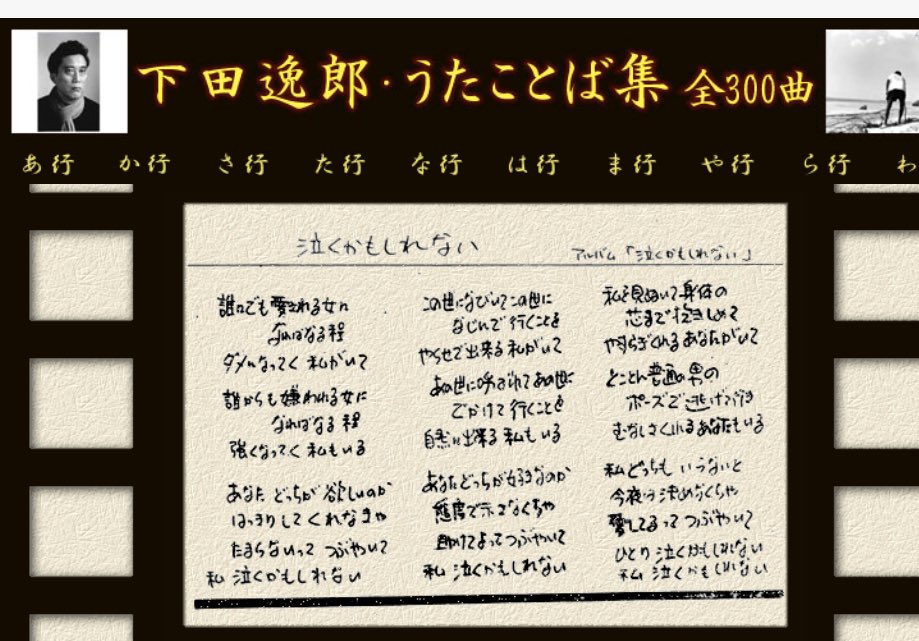 下田逸郎・うたことば集 全300曲
あ行 か行 さ行 た行 な行 は行 ま行 や行 ら行 わ
泣くかもしれない
アルバム「泣くかもしれない」
誰にでも愛される女に
なればなる程
ダメになってく 私がいて
誰からも嫌われる女に
なればなる程
強くなってく 私もいる
あなた どっちが 欲しいのか
はっきりしてくれなきゃ
たまらないって つぶやいて
私 泣くかもしれない
この世になびいてこの世に
なじんで 行くことを
やらせで出来る 私がいて
あの世に呼ばれて あの世に
でかけて 行くことを
自然に出来る 私もいる
あなた どっちが好きなのか
態度で示さなくちゃ
助けてよって つぶやいて
私 泣くかもしれない
私を見ぬいて 身体の
芯まで 抱きしめて
やすらぎくれる あなたがいて
とことん 普通の男の
ポーズで 逃げ
むなしさくれる あなたもいる
私 どっちも いらないと
今夜 決めなくちゃ
愛してるって つぶやいて
ひとり 泣くかもしれない
私 泣くかもしれない